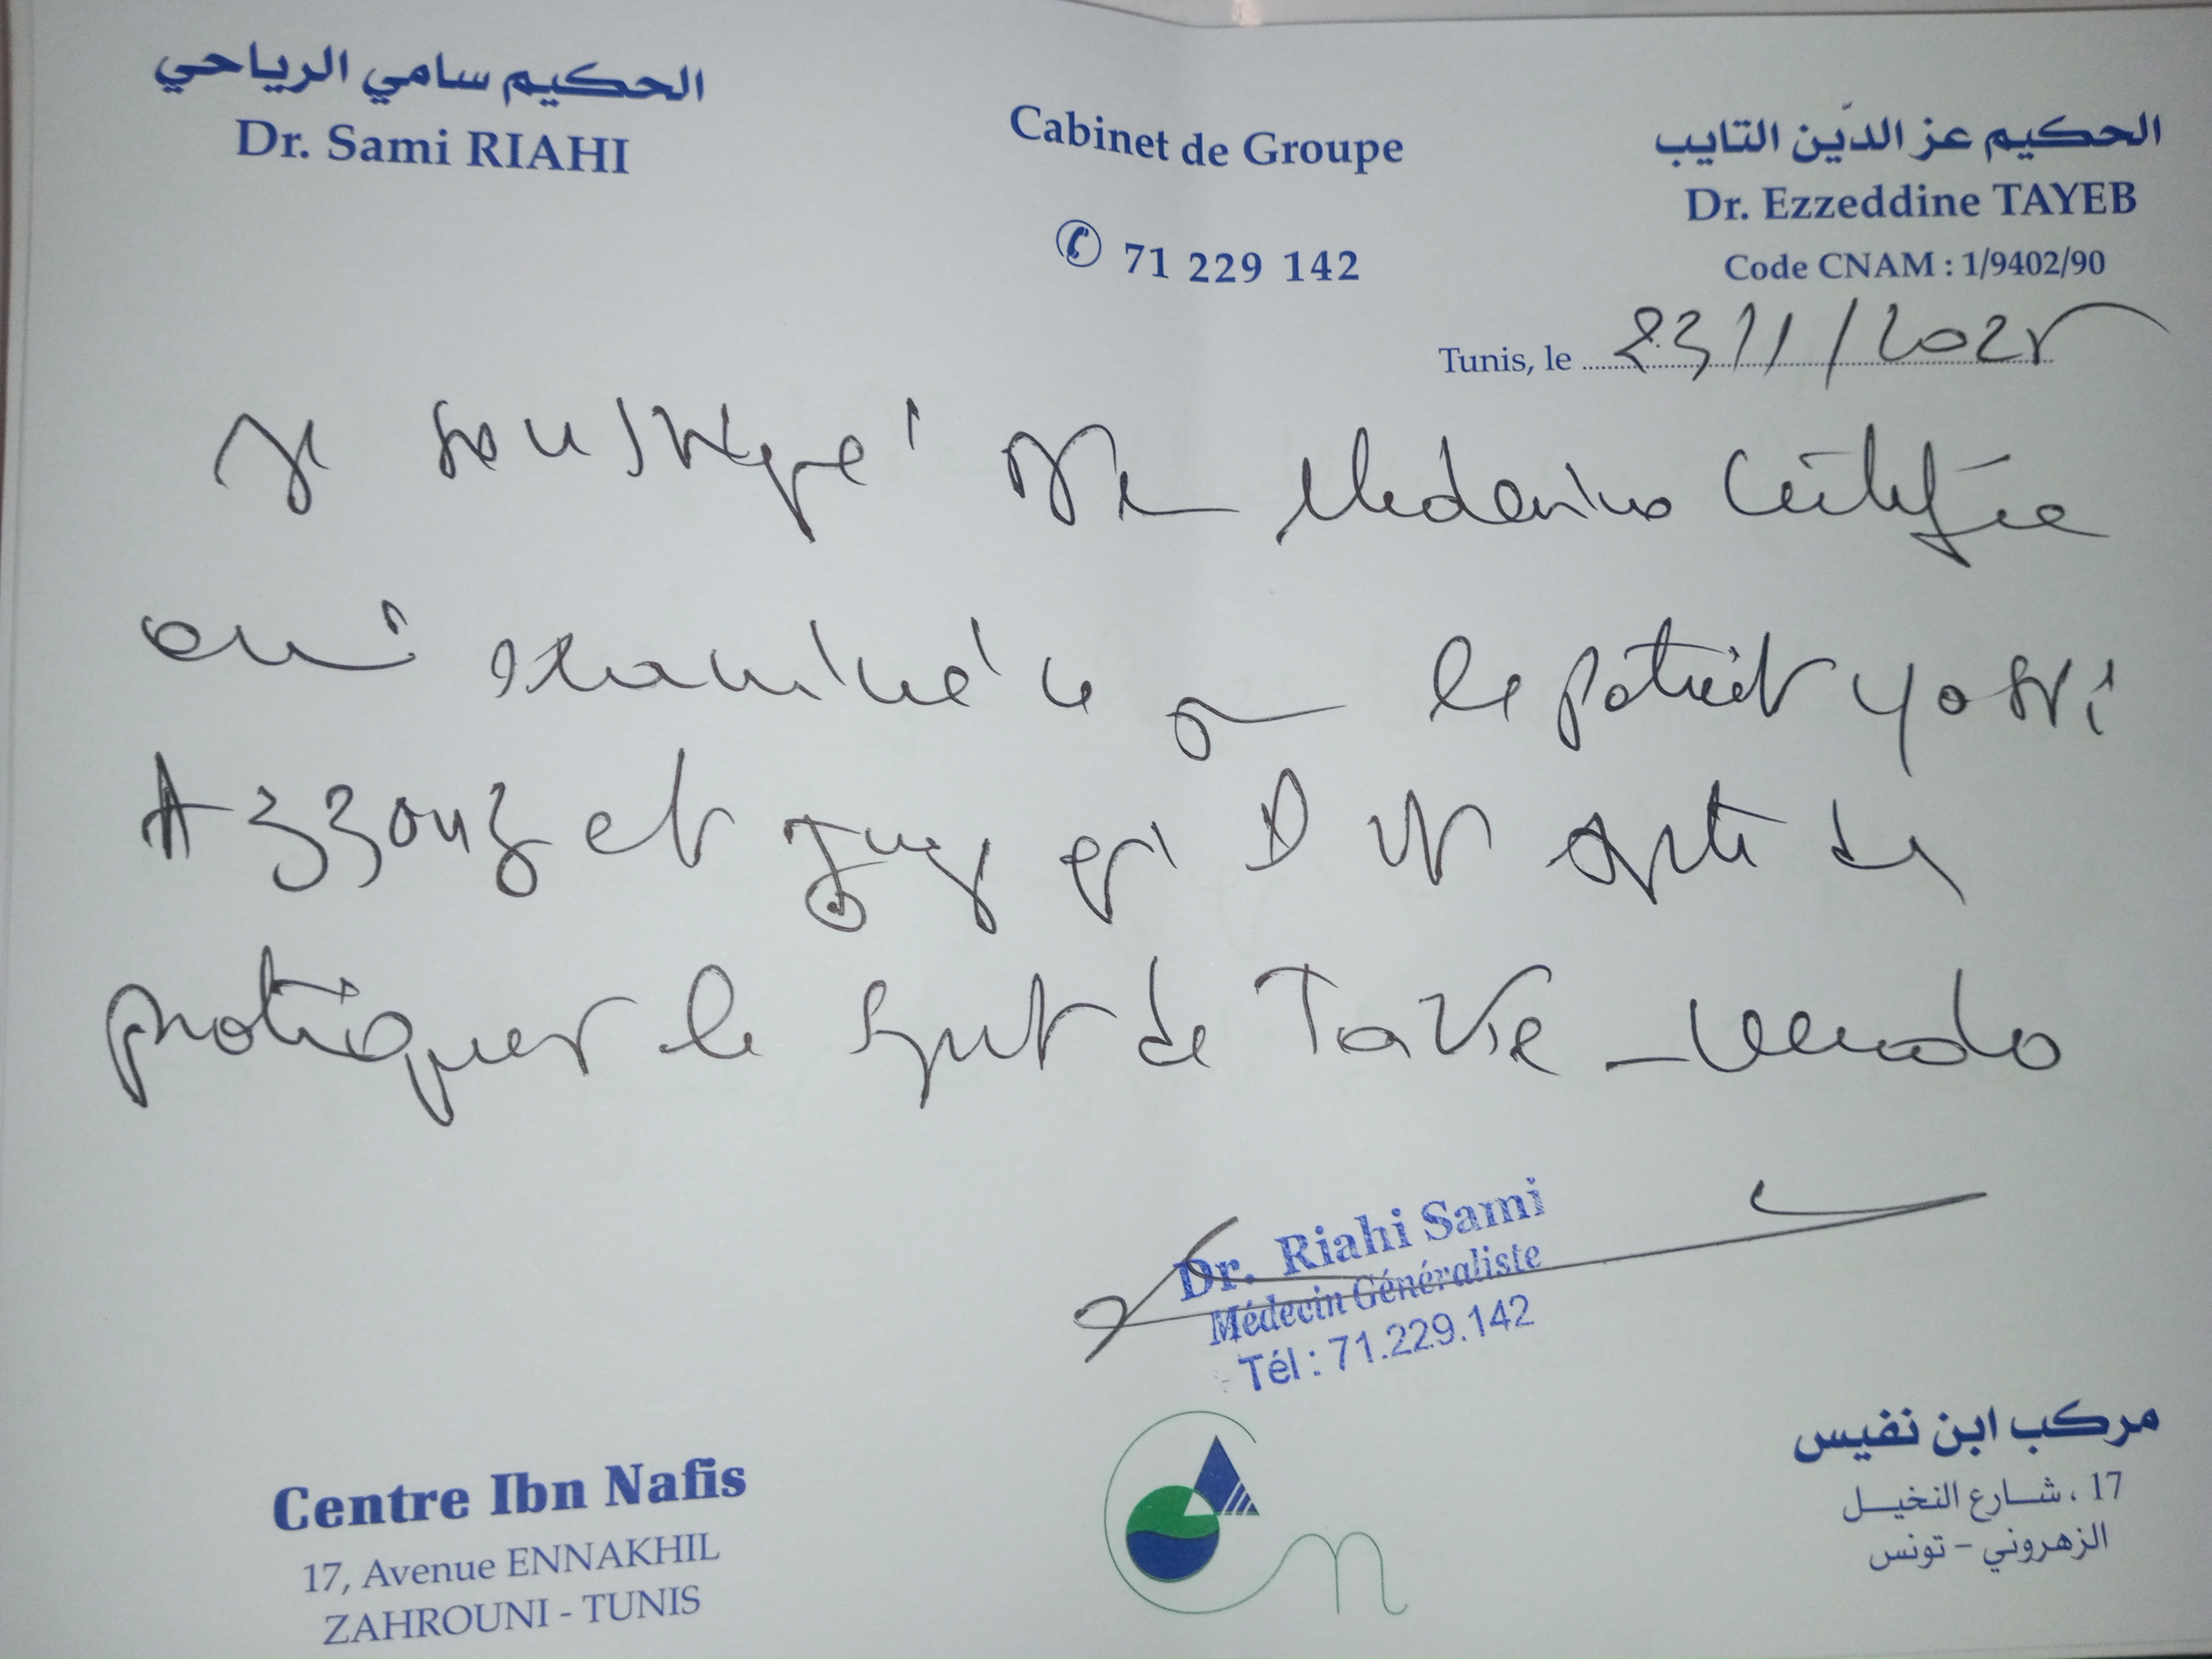 الحكيم سامي الرياحي
Dr. Sami RIAHI
Cabinet de Groupe
71 229 142
الحكيم عز الدّين التايب
Dr. Ezzeddine TAYEB
Code CNAM : 1/9402/90
Tunis, le 23/1/2025
Je soussigné Certifie
examiné ce le patient yosri
Azzouz et apte de
pratiquer le sport de
Dr. Riahi Sami
Médecin Généraliste
Tél : 71.229.142
Centre Ibn Nafis
17, Avenue ENNAKHIL
ZAHROUNI - TUNIS
مركب ابن نفيس
17 ، شارع النخيل
الزهروني - تونس